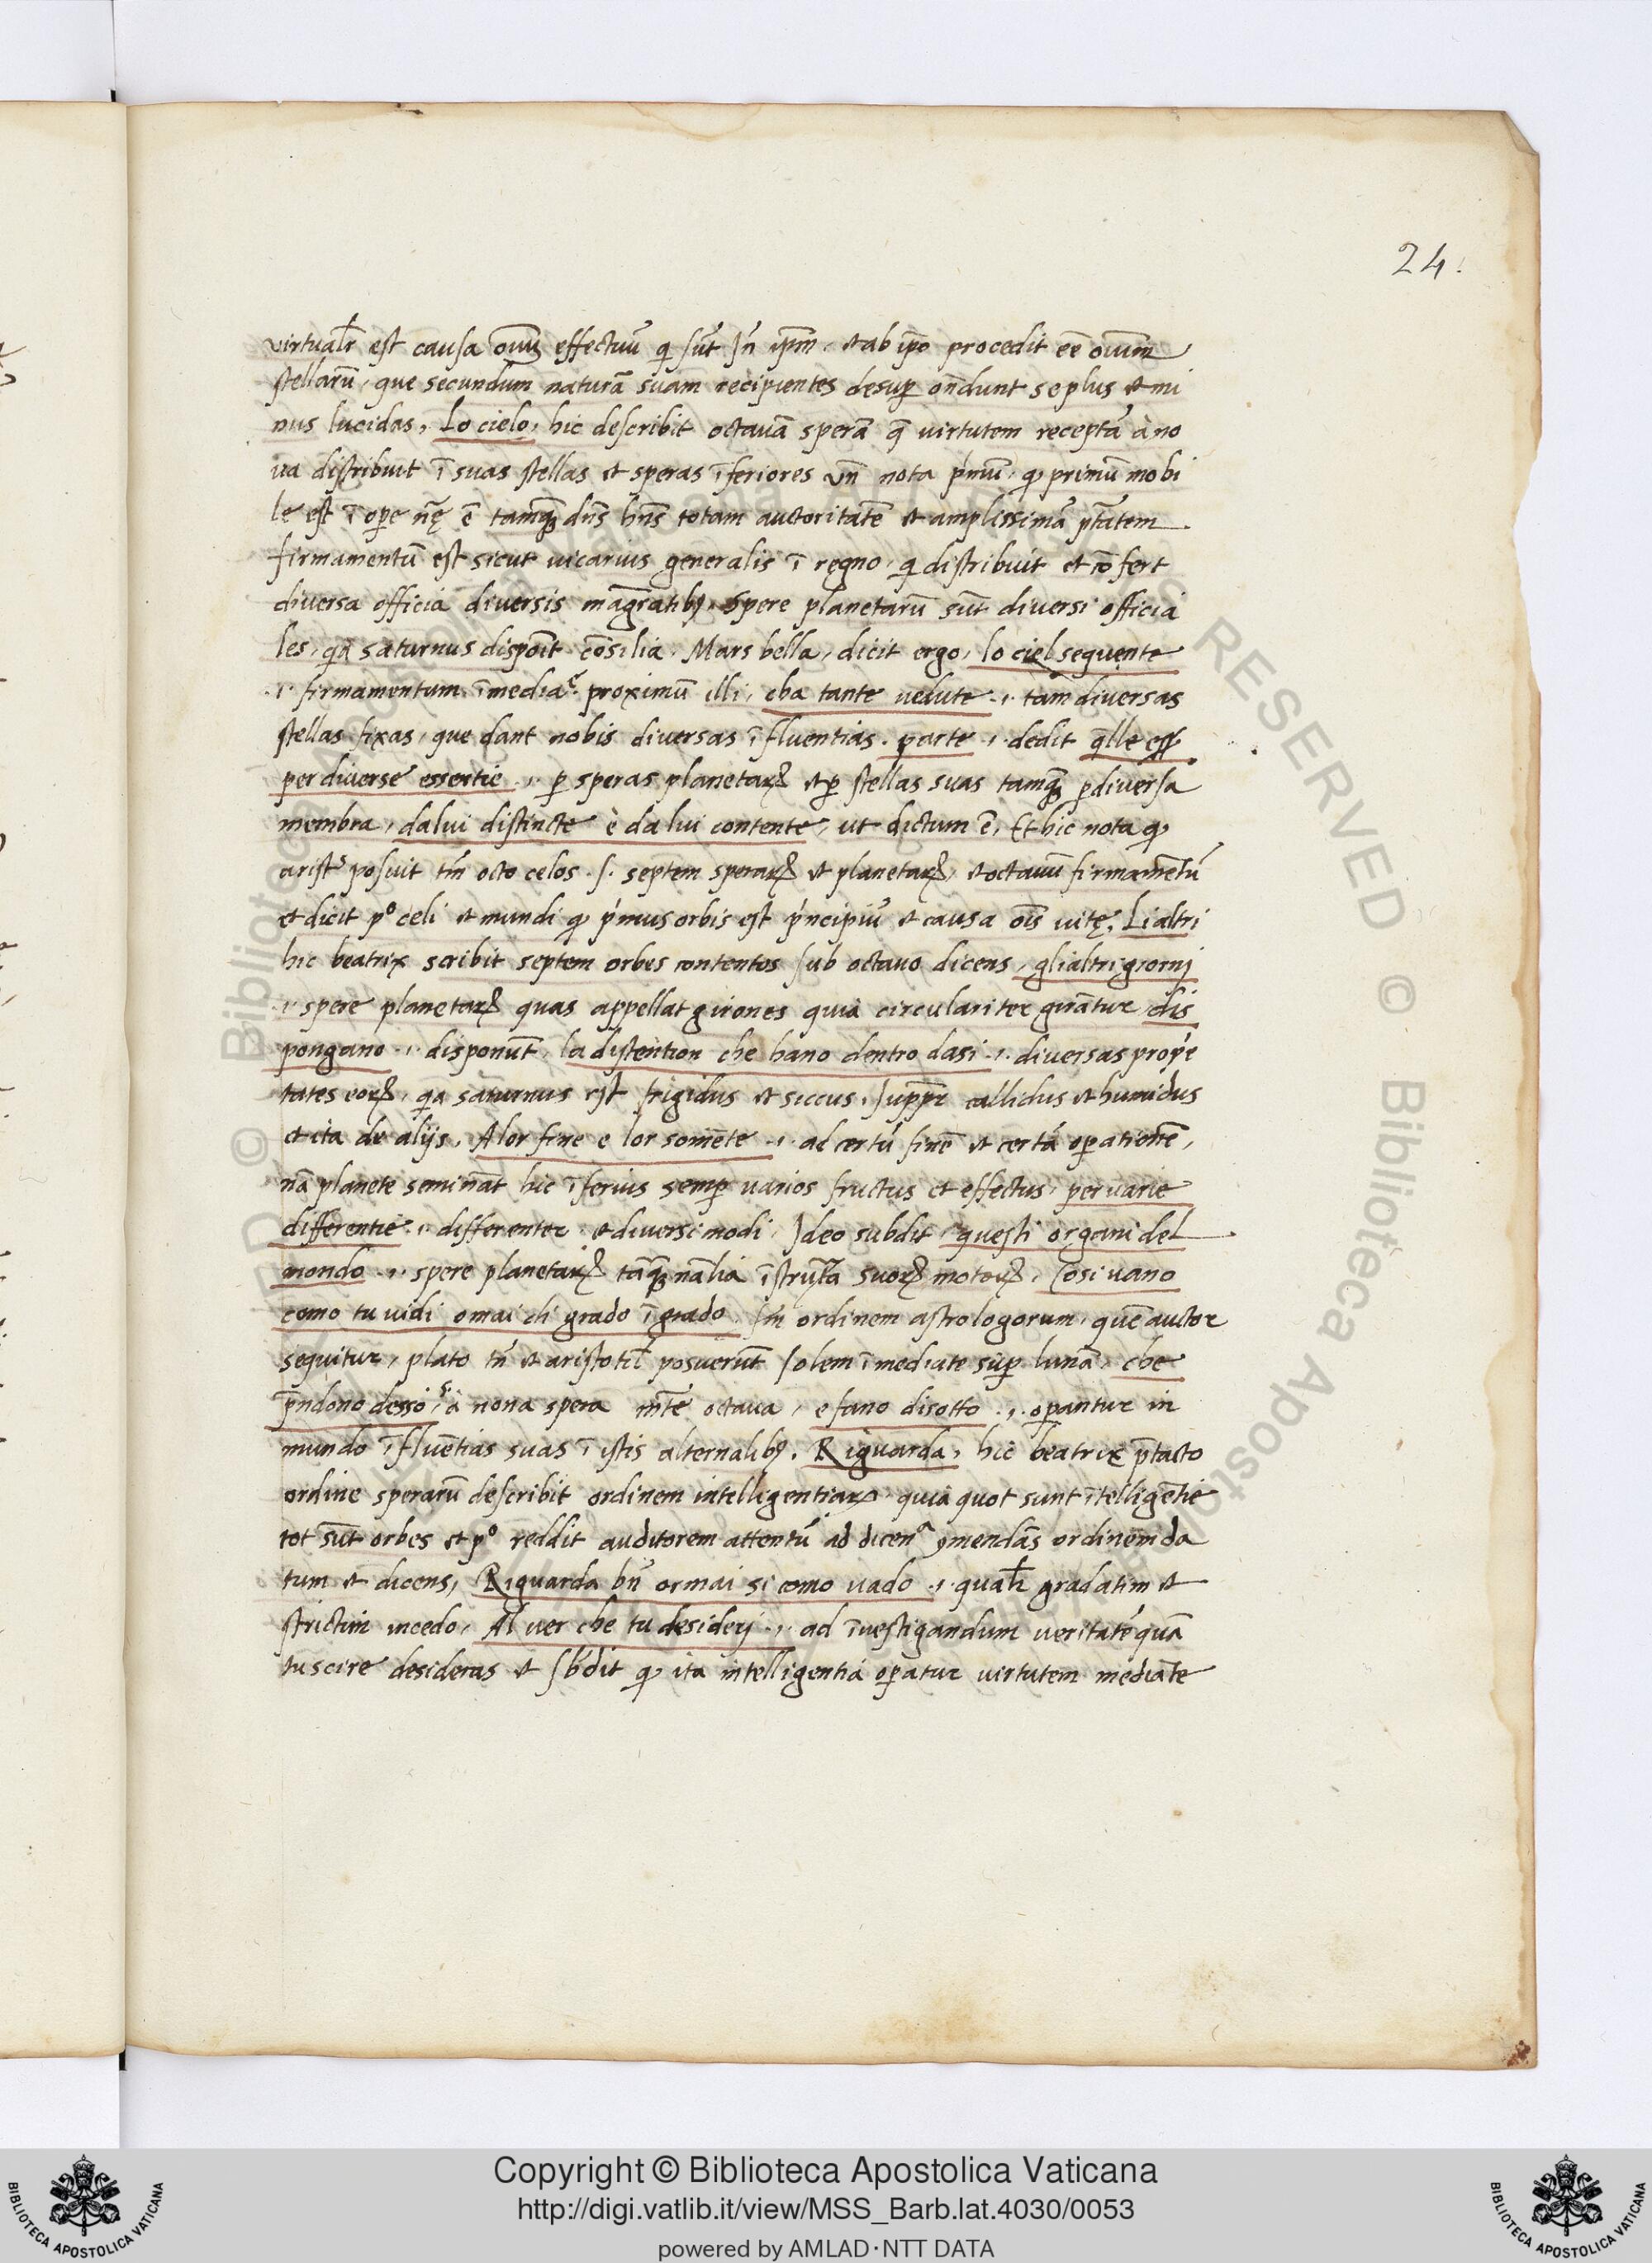 24.
virtualr̄ est causa oīum effectuū qi sūt Jn̄ ipm̄, et ab ipō procedit eē oīum
stellarū, que secundum naturā suam recipientes desup on̄dunt se plus et mi
nus lucidas, Lo cielo, hic describit octavā sperā q̄ virtutem receptā à no
va distribuit ī suas stellas et speras īferiores vn̄ nota p'mū, qꝫ primū mobi
le est ī ope nr̄ę ē tamqꝫ dn̄s hn̄s totam auctoritatē et amplissimā ptātem
firmamentū est sicut vicarius generalis ī regno, qi distribuit et cōfert
diversa officia diversis magr̄atibꝫ, Spere planetarū sūt diversi officia
les, qa saturnus dispoīt cōsilia. Mars bella, dicit ergo, lo ciel seguente
.i. firmamentum īmediate proximū illi, cha tante vedute .i. tam diversas
stellas fixas, que dant nobis diversas īfluentias. parte .i. dedit qlle ess̄
per diverse essentie .i. ꝑ speras planetaꝝ et ꝑ stellas suas tamqꝫ ꝑ diversa
membra, dalui distincte è da lui contente, ut dictum ē, Et hic nota qꝫ
arist's posuit tm̄ octo celos .s. septem speraꝝ et planetaꝝ, et octauū firmamētū
et dicit pº celi et mundi qꝫ p'mus orbis est p'ncipiū et causa oīs vitę, Li altri
hic beatrix scribit septem orbes contentos sub octavo dicens, gli altri giornj
.i. spere planetaꝝ quas appellat girones quia circulariter girātur dis
pongano .i. disponūt, la distention che hano dentro dasi .i. diversas prop'e
tates eoꝝ, qa saturnus est frigidus et siccus, Juppr̄ callidus et humidus
et ita de alijs, A lor fine e lor somēte .i. ad certū finē et certā opationē,
nā planete semināt hic īferius semp varios fructus et effectus, per varie
differentie .i. differenter et diversi modi, Jdeo subdit, questi organi del
mondo .i. spere planetaꝝ tāqꝫ nālia īstrumēta suoꝝ motoꝝ, Cosi vano
como tu vidi omai di grado ī grado, Sm̄ ordinem astrologorum, quē auctor
sequitur, plato tn̄ et aristotil̄ posuerūt solem īmediate sup lunā, che
p̄ndono desso, .s. à nona spera mt̄e octava, e fano disotto .i. opantur in
mundo īfluētias suas ī istis alternalibꝫ. Riguarda, hic beatrix ptacto
ordine sperarū describit ordinem intelligentiaꝝ quia quot sunt ītelligētie
tot sūt orbes et pº reddit auditorem attentū ad dicenᵃ ꝯmendās ordinem da
tum et dicens, Riguarda bn̄ ormai si como vado .i. qualr̄ gradatim et
strictim incedo, Al ver che tu desiderj .i. ad īvestigandum veritatē quā
tu scire desideras et sb'dit qꝫ ita intelligentia opatur virtutem mediāte
© Biblioteca Apostolica Vaticana
RESERVED
© Biblioteca Apostolica
BIBLIOTECA APOSTOLICA VATICANA
Copyright © Biblioteca Apostolica Vaticana
http://digi.vatlib.it/view/MSS_Barb.lat.4030/0053
powered by AMLAD·NTT DATA
BIBLIOTECA APOSTOLICA VATICANA